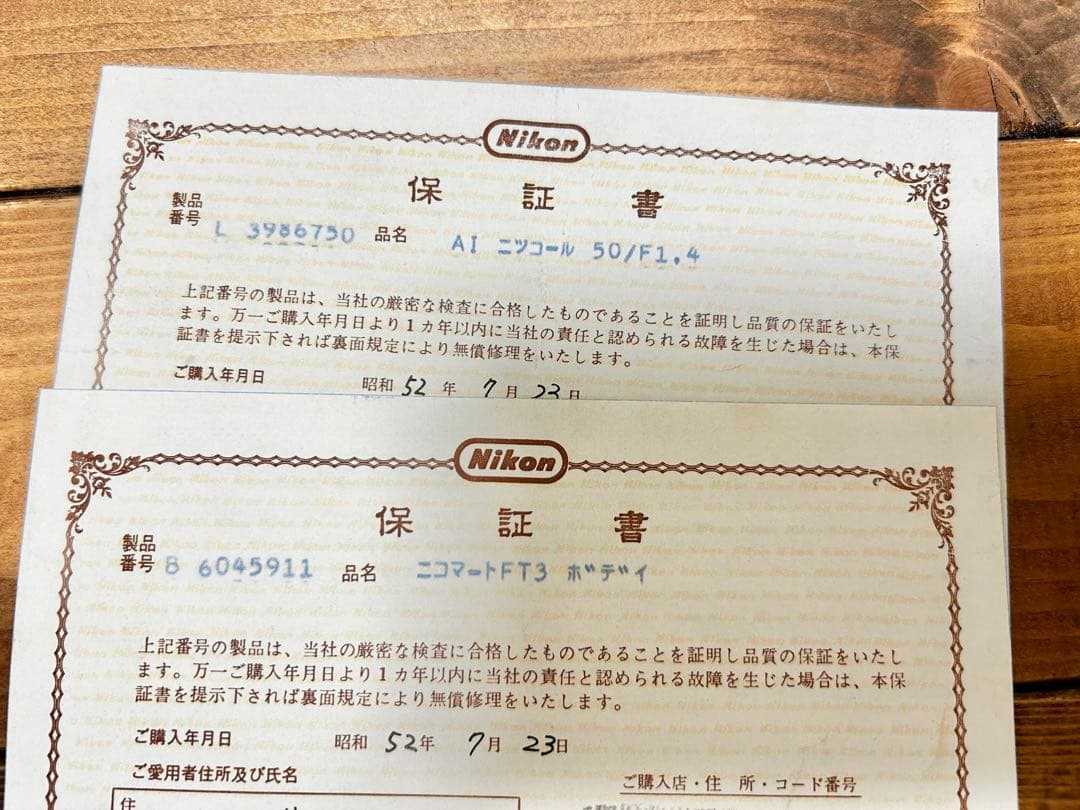 Nikon
保証書
製品
番号 L 3986750 品名 AI ニツコール 50/F1.4
上記番号の製品は、当社の厳密な検査に合格したものであることを証明し品質の保証をいたし
ます。万一ご購入年月日より1カ年以内に当社の責任と認められる故障を生じた場合は、本保
証書を提示下されば裏面規定により無償修理をいたします。
ご購入年月日 昭和 52 年 7 月 23 日
Nikon
保証書
製品
番号 B 6045911 品名 ニコマートFT3 ボデイ
上記番号の製品は、当社の厳密な検査に合格したものであることを証明し品質の保証をいたし
ます。万一ご購入年月日より1カ年以内に当社の責任と認められる故障を生じた場合は、本保
証書を提示下されば裏面規定により無償修理をいたします。
ご購入年月日 昭和 52年 7月 23日
ご愛用者住所及び氏名 ご購入店・住 所・コード番号
住